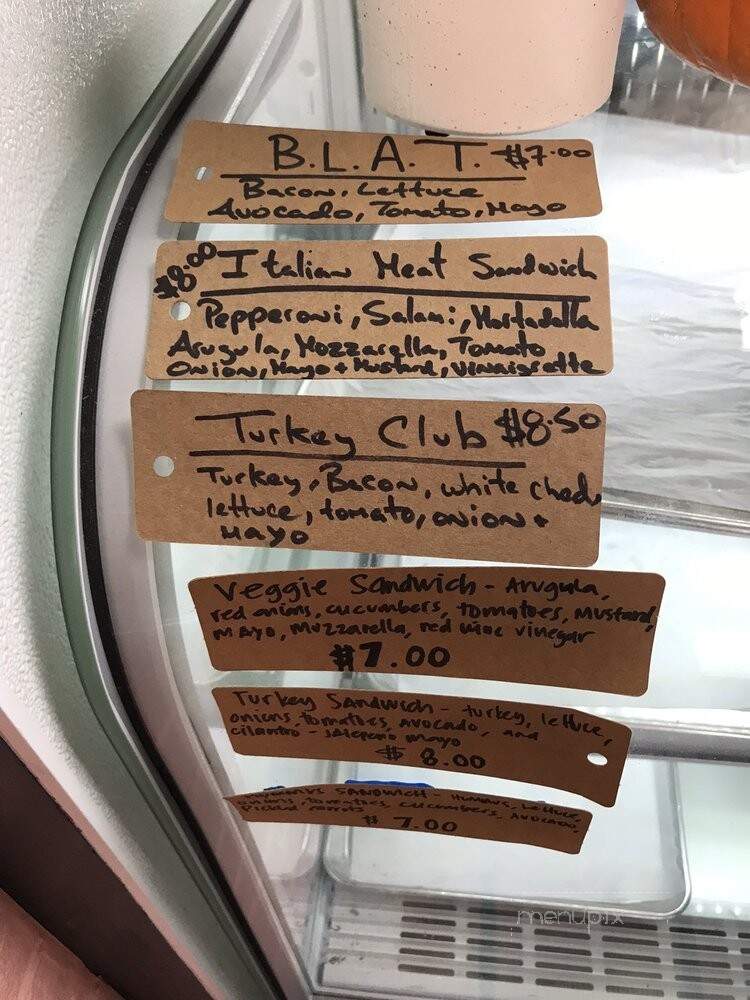 B.L.A.T. $7.00
Bacon, Lettuce
Avocado, Tomato, Mayo
$8.00 Italian Meat Sandwich
Pepperoni, Salami, Mortadella
Arugula, Mozzarella, Tomato
Onion, Mayo + Mustard, Vinaigrette
Turkey Club $8.50
Turkey, Bacon, white ched
lettuce, tomato, onion +
Mayo
Veggie Sandwich - Arugula,
red onions, cucumbers, tomatoes, mustard,
mayo, mozzarella, red wine vinegar
$7.00
Turkey Sandwich - turkey, lettuce,
onions, tomatoes, avocado, and
cilantro - jalepeno mayo
$8.00
Sandwich - hummus, lettuce,
onions, tomatoes, cucumbers, avocado,
pickled carrots
$7.00
menupix